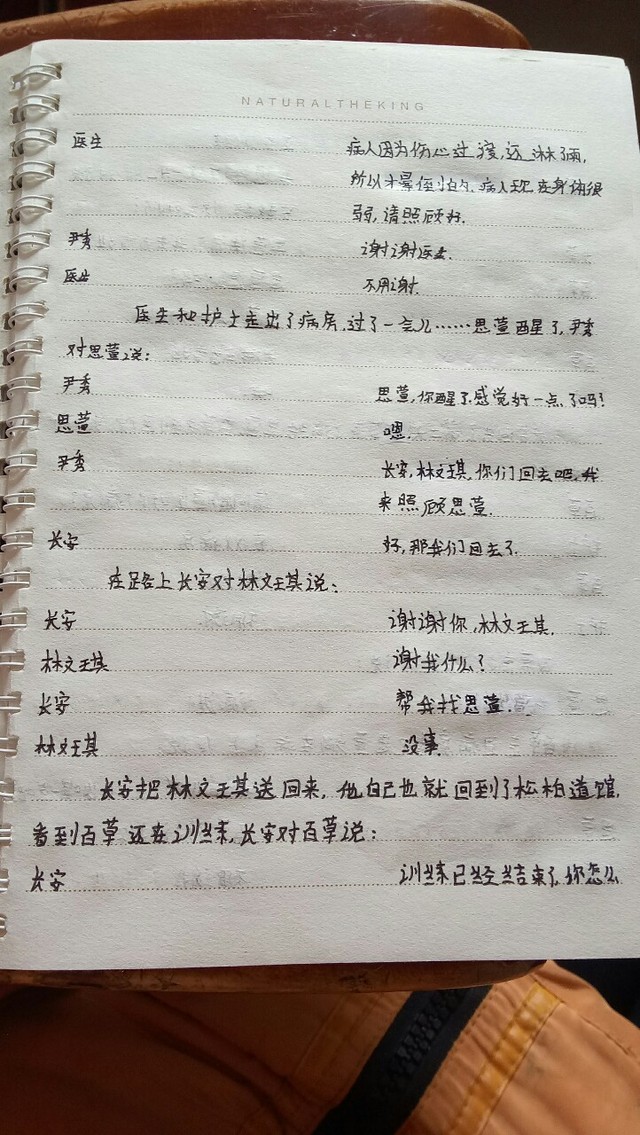 NATURALTHEKING
医生 病人因为伤心过度,还淋了雨,
所以才晕倒的.病人现在身体很
弱,请照顾好.
尹秀 谢谢医生.
医生 不用谢.
医生和护士走出了病房,过了一会儿……思萱醒了,尹秀
对思萱说:
尹秀 思萱,你醒了,感觉好一点了吗?
思萱 嗯.
尹秀 长安,林文琪,你们回去吧,我
来照顾思萱.
长安 好,那我们回去了.
在路上长安对林文琪说:
长安 谢谢你,林文琪.
林文琪 谢我什么?
长安 帮我找思萱.
林文琪 没事.
长安把林文琪送回来,他自己也就回到了松柏道馆,
看到百草还在训练,长安对百草说:
长安 训练已经结束了,你怎么